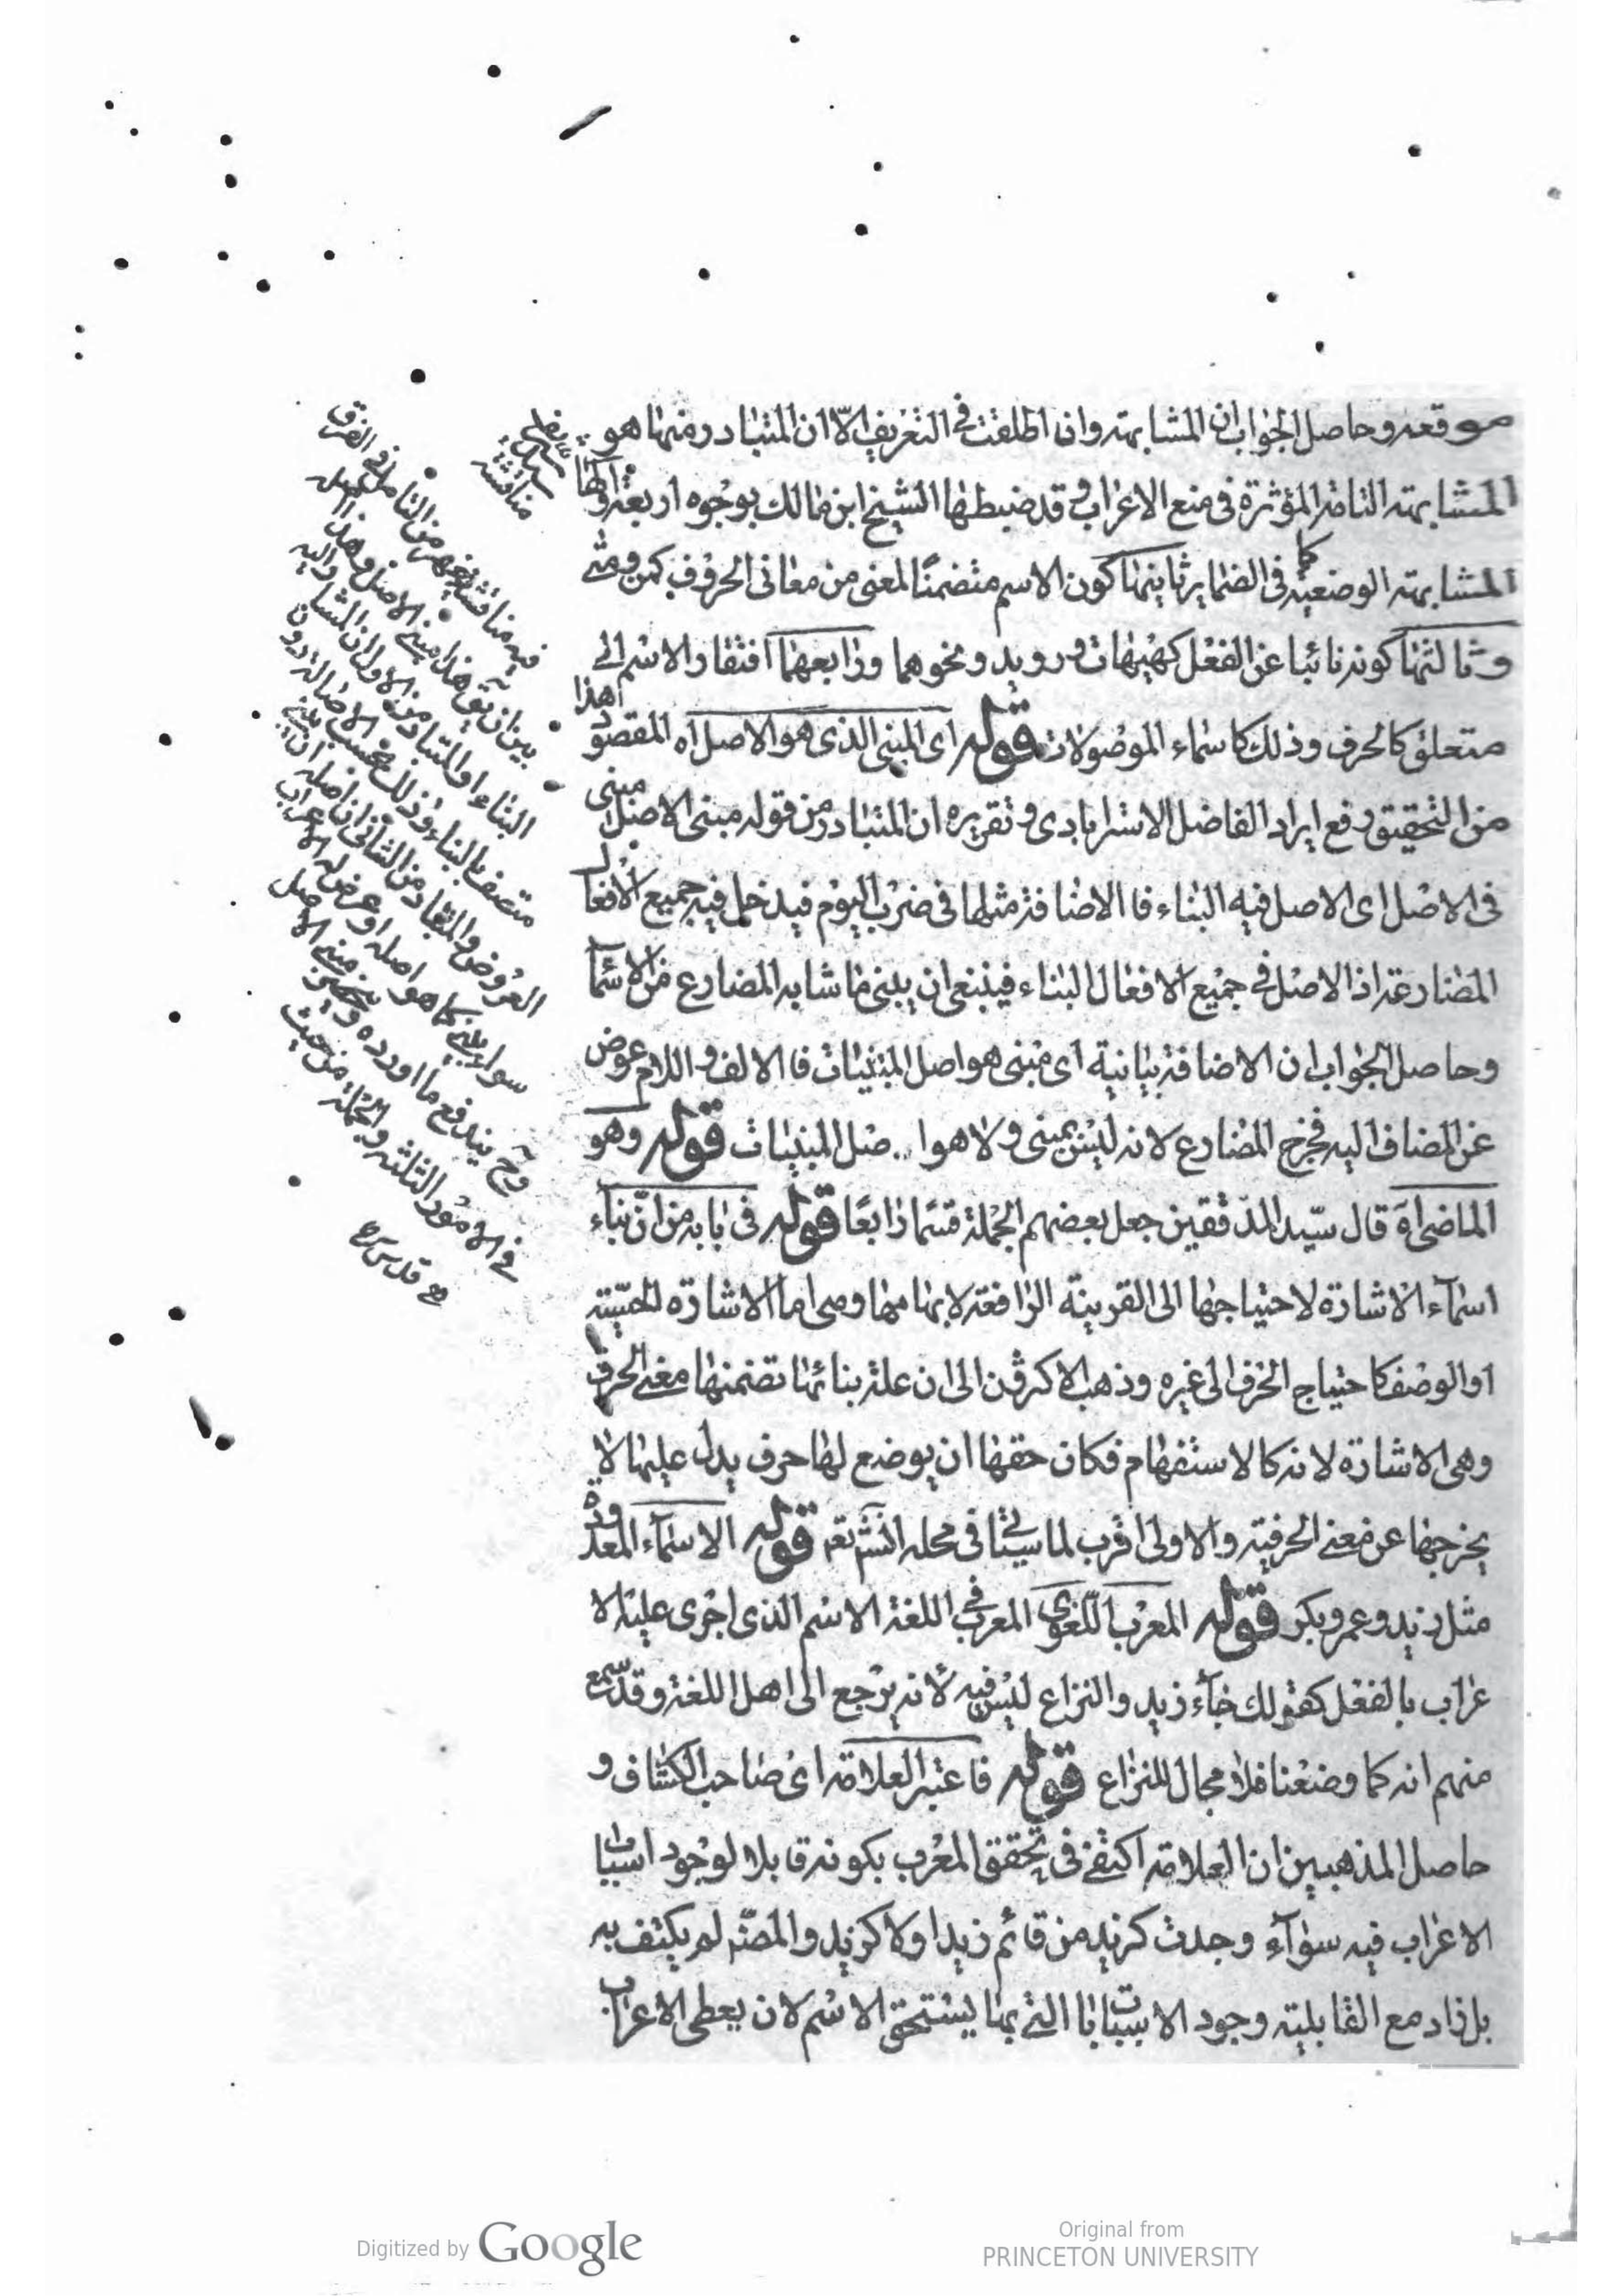 موقعه وحاصل الجواب ان المشابهته وان اطلقت في التعريف الّا ان المتبادر منها هو
المشابهته التامة المؤثرة في منع الاعراب وقد ضبطها الشيخ ابن مالك بوجوه اربعة اولها
المشابهته الوضعيّة كما في الضماير ثانيها كون الاسم متضمنًا لمعنى من معانى الحروف كمن ومتى
وثالثها كونه نائبا عن الفعل كهيهات ورويد ونحوهما ورابعها افتقار الاسم الى
متعلق كالحرف وذلك كاسماء الموصولات قوله اى المبنى الذى هو الاصل اه المقصود هذا
من التحقيق دفع ايراد الفاضل الاسترابادى وتقريره ان المتبادر من قوله مبنى الاصل مبنى
فى الاصل اى الاصل فيه البناء فالاضافة مثلها فى ضرب اليوم فيدخل فيه جميع الافعال
المضارعة اذ الاصل في جميع الافعال البناء فينبغى ان يبنى ما شابه المضارع من الاسمآ
وحاصل الجواب ان الاضافة بيانية اى مبنى هو اصل المبنيات فالالف واللام عوض
عن المضاف اليه فخرج المضارع لانه ليس بمبنى ولا هو ا..صل المبنيات قوله وهو
الماضى اه قال سيّد المدققين جعل بعضهم الجملة قسمًا رابعًا قوله فى بابه من انّ بناء
اسمآء الاشارة لاحتياجها الى القرينة الرافعة لابهامها وهى اما الاشارة الحسّيته
او الوصف كاحتياج الحرف الى غيره وذهب الاكثرون الى ان علة بنائها تضمنها معنى الحرف
وهى الاشارة لانه كالاستفهام فكان حقها ان يوضع لها حرف يدل عليها لا
يخرجها عن معنى الحرفيته والاولى اقرب لما سيأتى فى محله انش تعم قوله الاسمآء المعدودة
مثل زيد وعمرو بكر قوله المعرب اللّغوى المعرب فى اللغة الاسم الذى اجرى عليه الا
عراب بالفعل كقولك جآء زيد والنزاع ليس فيه لانه يرجع الى اهل اللغة وقد سمع
منهم انه كما وضعنا فلا مجال للنزاع قوله فاعتبر العلامة اى صاحب الكشاف و
حاصل المذهبين ان العلامة اكتفى فى تحقق المعرب بكونه قابلا لوجود اسباب
الاعراب فيه سوآء وجدت كزيد من قائم زيد او لا كزيد والمصّ لم يكتف به
بل زاد مع القابلية وجود الاسباب التى بها يستحق الاسم لان يعطى الاعراب
مناقشة
فيه مناقشة يظهر من التأمل فى الفرق
بين ان يق هذا مبنى الاصل وهذا اصله
البناء اذ المتبادر من الاول ان المشار اليه
متصف بالبناء وذلك بحسب الاصالة دون
العروض والمتبادر من الثانى ان اصله ان يبنى
سواء بنى كما هو اصله او عرض له الاعراب
وح يندفع ما اورده وينحصر مبنى الاصل
فى الامور الثلثة والجملة من حيث
قدس سره
Digitized by Google
Original from
PRINCETON UNIVERSITY